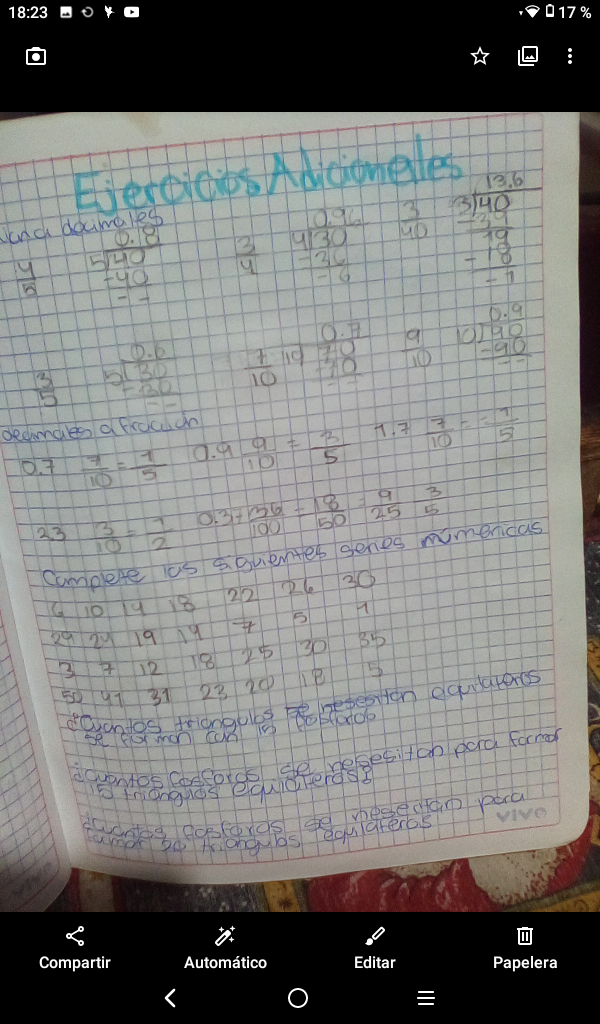 18:23 17 %
Ejercicios Adicionales
decimales
4/5 0.8 5)40 -40 --
3/4 0.96 4)30 -26 -6
3/40 13.6 3)40 -39 19 -18 -1
3/5 0.6 5)30 -30 --
7/10 0.7 10 70 -70 --
9/10 0.9 10)90 -90 --
decimales a fracción
0.7 7/10 = 1/5 0.9 9/10 = 3/5 1.7 7/10 = 1/5
23 3/10 = 1/2 0.3 36/100 = 18/50 = 9/25 3/5
Complete las siguientes series númericas
6 10 14 18 22 26 30
29 24 19 14 7 5 1
3 7 12 18 25 30 35
50 41 31 23 20 18 5
¿Cuantos triangulos se nesesitan equilateros
se forman con 15 fosforos
¿cuantos fosforos se nesesitan para formar
15 triangulos equilateros?
¿cuantos fosforos se nesecitan para
formar 20 triangulos equilateros
vivo
vivo
Compartir Automático Editar Papelera